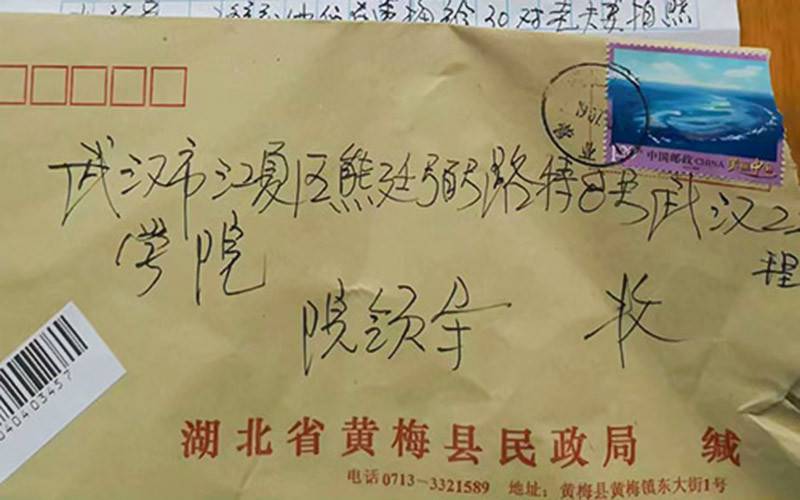 给30对老夫妻拍照
中国邮政 CHINA 美丽中国
营业
武汉市江夏区熊廷弼路特8号武汉工
程
学院
院领导 收
040403457
湖北省黄梅县民政局 缄
电话0713-3321589 地址：黄梅县黄梅镇东大街1号